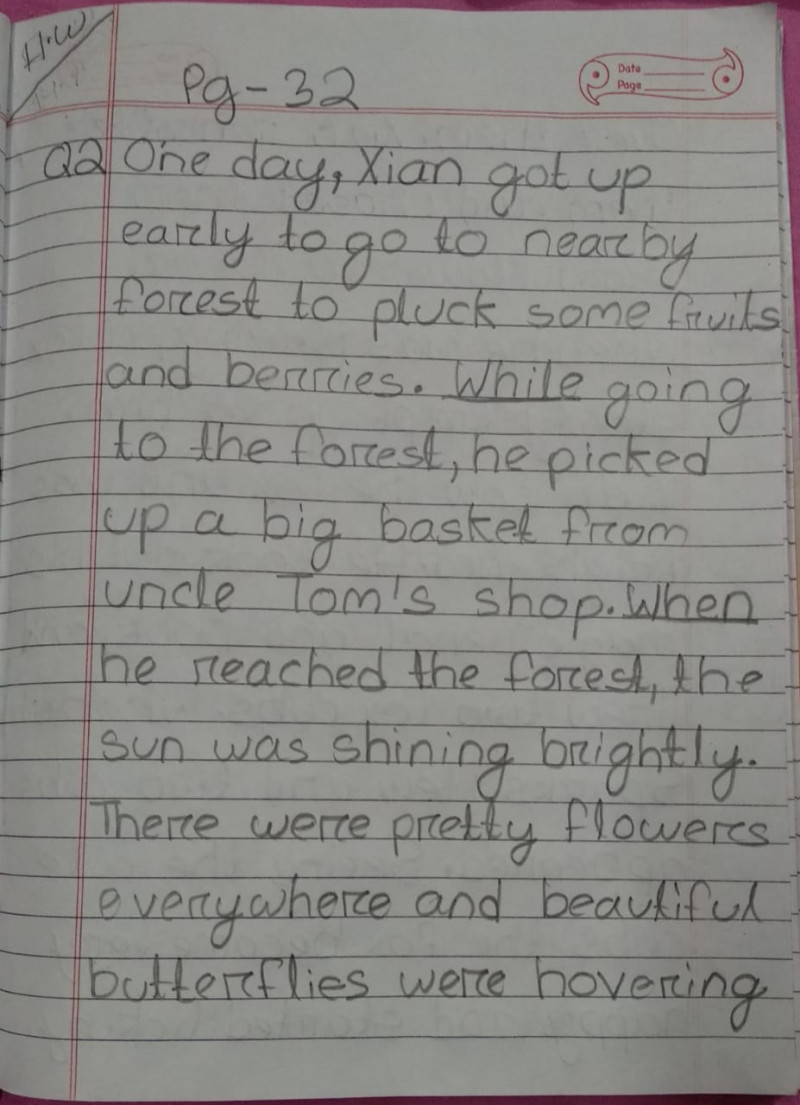 H.W
Pg-32
Date
Page
Q2 One day, Xian got up
early to go to nearby
forest to pluck some fruits
and berries. While going
to the forest, he picked
up a big basket from
uncle Tom's shop. When
he reached the forest, the
sun was shining brightly.
There were pretty flowers
everywhere and beautiful
butterflies were hovering